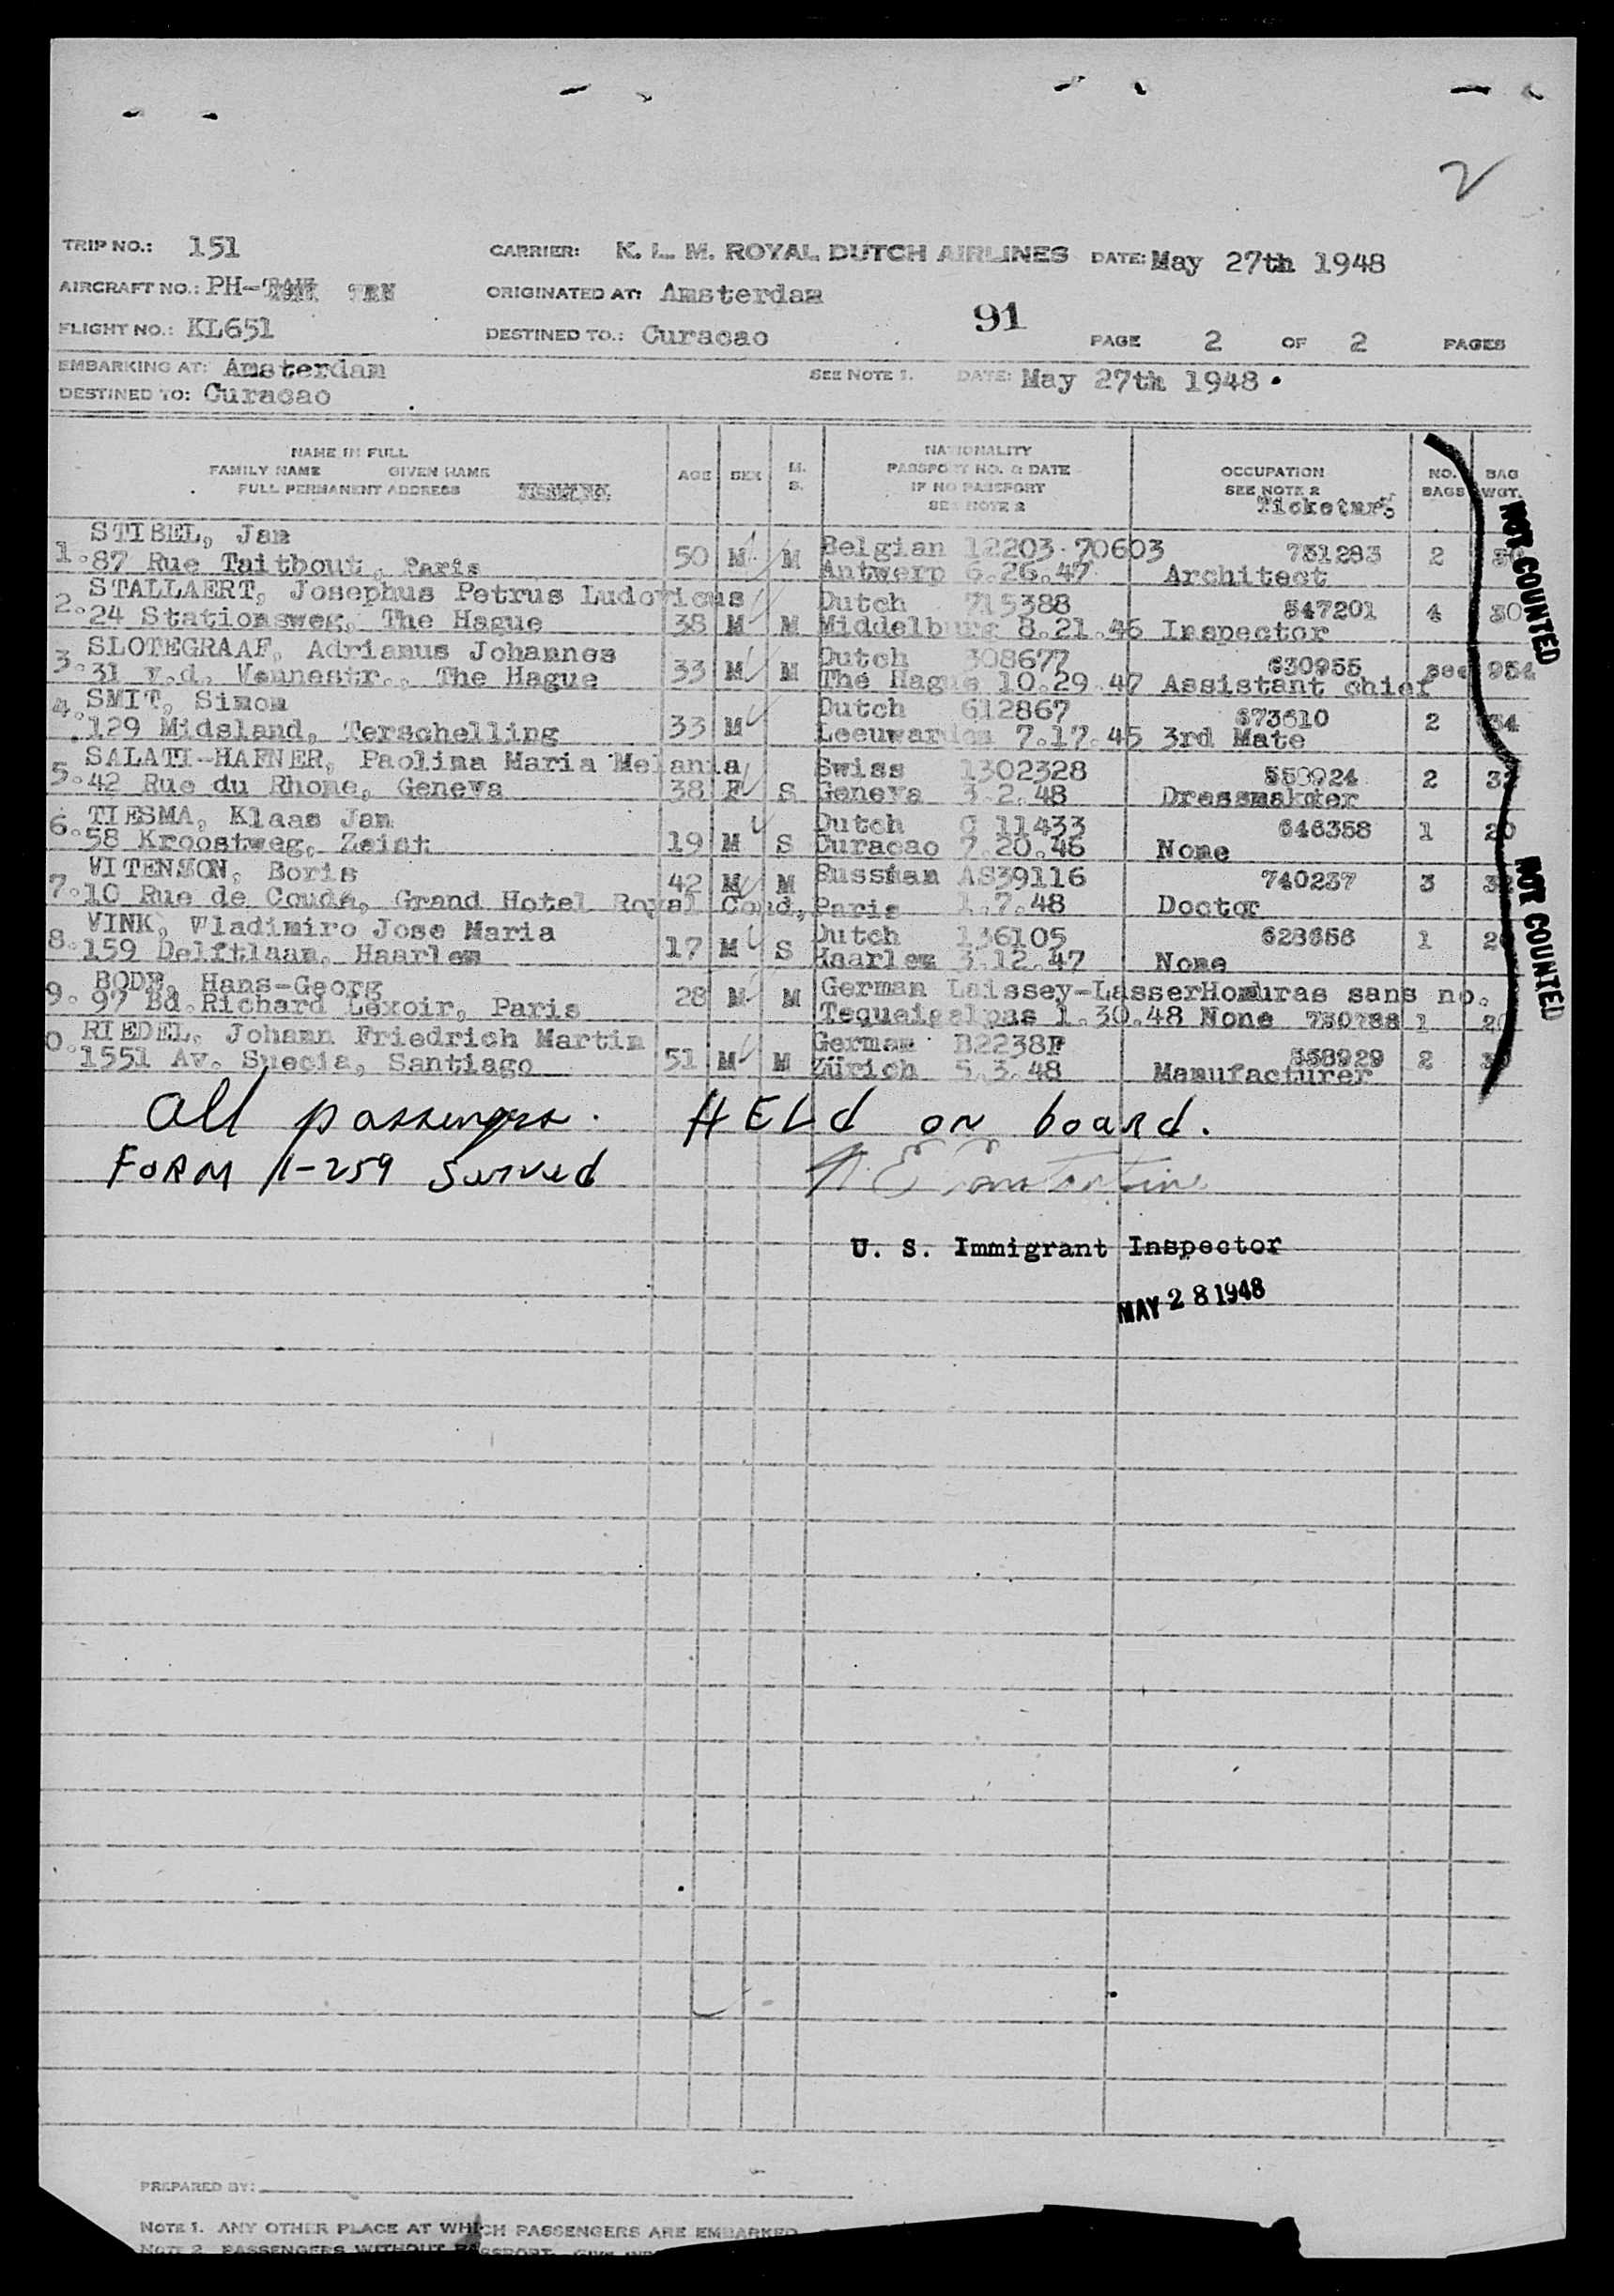 2
TRIP NO.: 151 CARRIER: K. L. M. ROYAL DUTCH AIRLINES DATE: May 27th 1948
AIRCRAFT NO.: PH- TEN ORIGINATED AT: Amsterdam
91
FLIGHT NO.: KL651 DESTINED TO.: Curacao PAGE 2 OF 2 PAGES
EMBARKING AT: Amsterdam SEE NOTE 1. DATE: May 27th 1948.
DESTINED TO: Curacao
NAME IN FULL
FAMILY NAME GIVEN NAME
FULL PERMANENT ADDRESS
AGE SEX M. S.
NATIONALITY
PASSPORT NO. & DATE
IF NO PASSPORT
SEE NOTE 2
OCCUPATION
SEE NOTE 2
Ticketnr.
NO. BAGS
BAG WGT.
STIBEL, Jan Belgian 12203.70603 731283
1. 87 Rue Taitbout, Paris 50 M M Antwerp 6.26.47 Architect 2
STALLAERT, Josephus Petrus Ludovicus Dutch 715388 547201
2. 24 Stationsweg, The Hague 38 M M Middelburg 8.21.46 Inspector 4 30
SLOTEGRAAF, Adrianus Johannes Dutch 308677 630955
3. 31 v.d. Vennestr., The Hague 33 M M The Hague 10.29.47 Assistant chief see 954
SMIT, Simon Dutch 612867 673610
4. 129 Midsland, Terschelling 33 M Leeuwarden 7.17.45 3rd Mate 2 34
SALATI-HAFNER, Paolina Maria Melania Swiss 1302328
5. 42 Rue du Rhone, Geneva 38 F S Geneva 3.2.48 2
TIESMA, Klaas Jan Dutch C 11433 646358
6. 58 Kroostweg, Zeist 19 M S Curacao 7.20.46 None 1 20
WITENSON, Boris Russian AS39116 740237
7. 10 Rue de Condé, Grand Hotel Royal Cond, Paris 42 M M 1.7.48 Doctor 3
VINK, Wladimiro Jose Maria Dutch 136105 628656
8. 159 Delftlaan, Haarlem 17 M S Haarlem 3.12.47 None 1
BODE, Hans-Georg German Laissey-LasserHonduras sans no.
9. 97 Bd.Richard Lexoir, Paris 28 M M Tequaigalpas 1.30.48 None 730788 1
RIEDEL, Johann Friedrich Martin German B2238F 558929
0. 1551 Av. Suecia, Santiago 51 M M Zürich 5.3.48 Manufacturer 2
NOT COUNTED
NOT COUNTED
All passengers. HELd on board.
FORM I-259 Served
U. S. Immigrant Inspector
MAY 28 1948
PREPARED BY:
NOTE 1. ANY OTHER PLACE AT WHICH PASSENGERS ARE EMBARKED
NOTE 2. PASSENGERS WITHOUT PASSPORT, GIVE